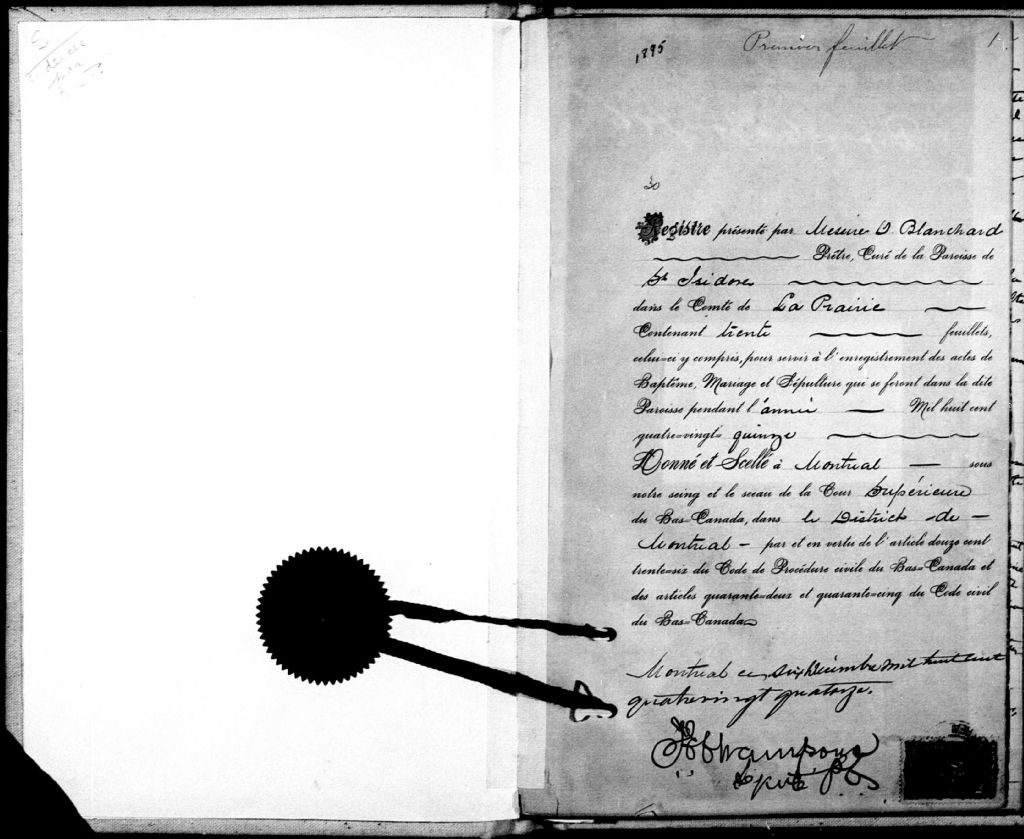 1895
Premier feuillet
1
30
Registre présenté par Messire V. Blanchard
Prêtre, Curé de la Paroisse de
St Isidore
dans le Comté de La Prairie
Contenant trente feuillets,
celui=ci y compris, pour servir à l'enregistrement des actes de
Baptême, Mariage et Sépulture qui se feront dans la dite
Paroisse pendant l'année Mil huit cent
quatre=vingt= quinze
Donné et Scellé à Montreal sous
notre seing et le sceau de la Cour Supérieure
du Bas=Canada, dans le District de
Montreal par et en vertu de l'article douze cent
trente=six du Code de Procédure civile du Bas=Canada et
des articles quarante=deux et quarante=cinq du Code civil
du Bas=Canada
Montreal ce six Decembre mil huit cent
quatrevingt quatorze.
Champoux
Depute P.C.S